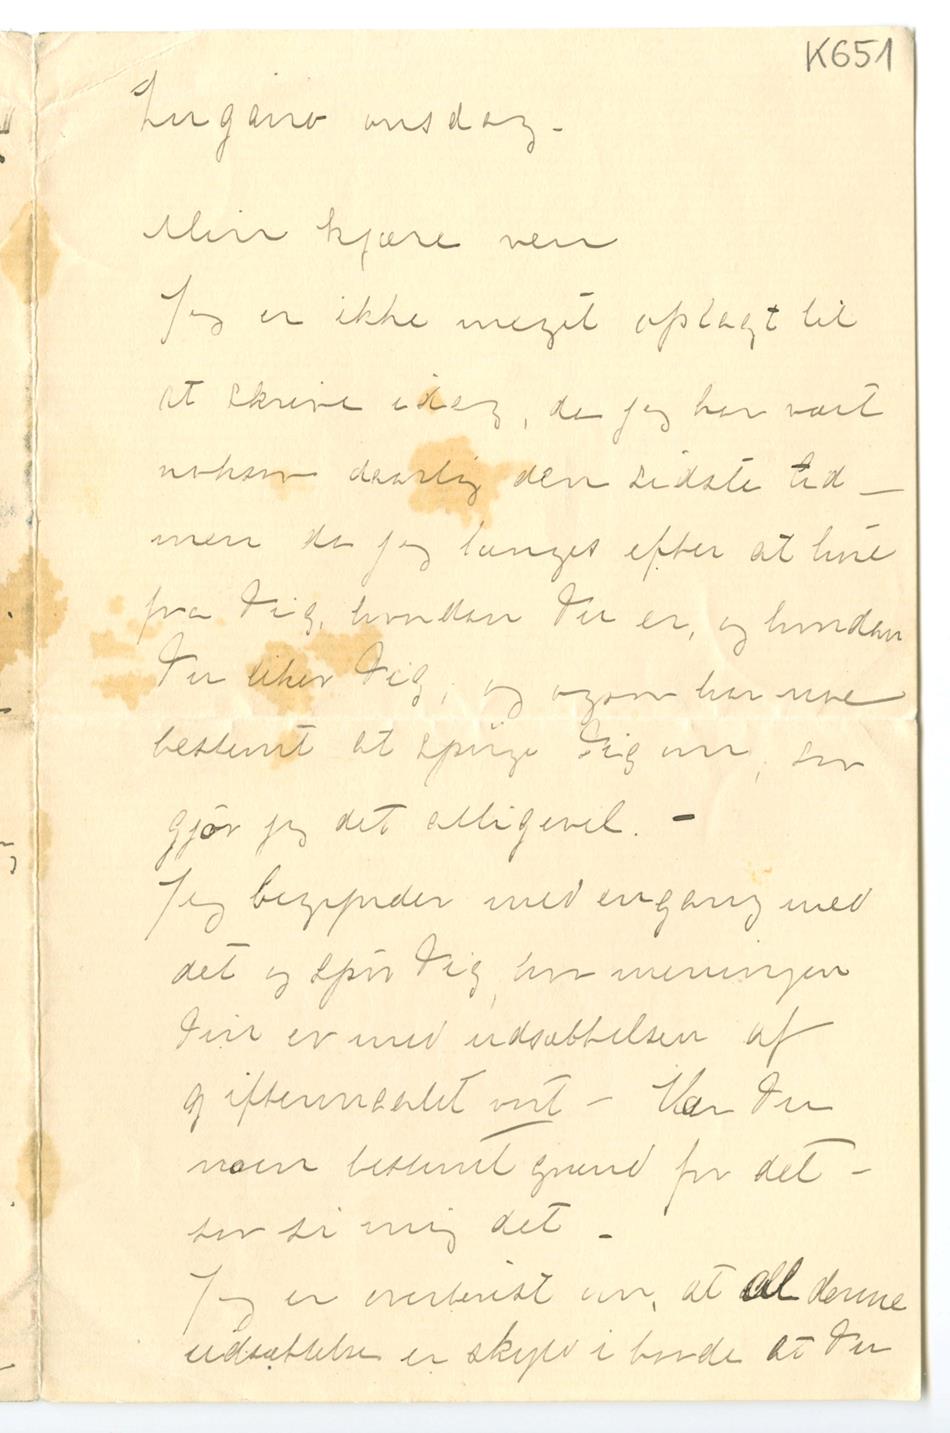 K651
Lugano onsdag -
Min kjære ven
Jeg er ikke meget oplagt til
at skrive idag, da jeg har vært
noksaa daarlig den sidste tid –
men da jeg længes efter at høre
fra Dig, hvordan Du er, og hvordan
Du liker Dig, og ogsaa har noe
bestemt at spørge Dig om, saa
gjør jeg det alligevel. -
Jeg begynder med engang med
det og spør Dig, hva meningen
Din er med udsættelsen af
giftermaalet vort – Har Du
noen bestemt grund for det –
saa si mig det -
Jeg er overbevist om, at all denne
udsættelse er skyld i baade at Du